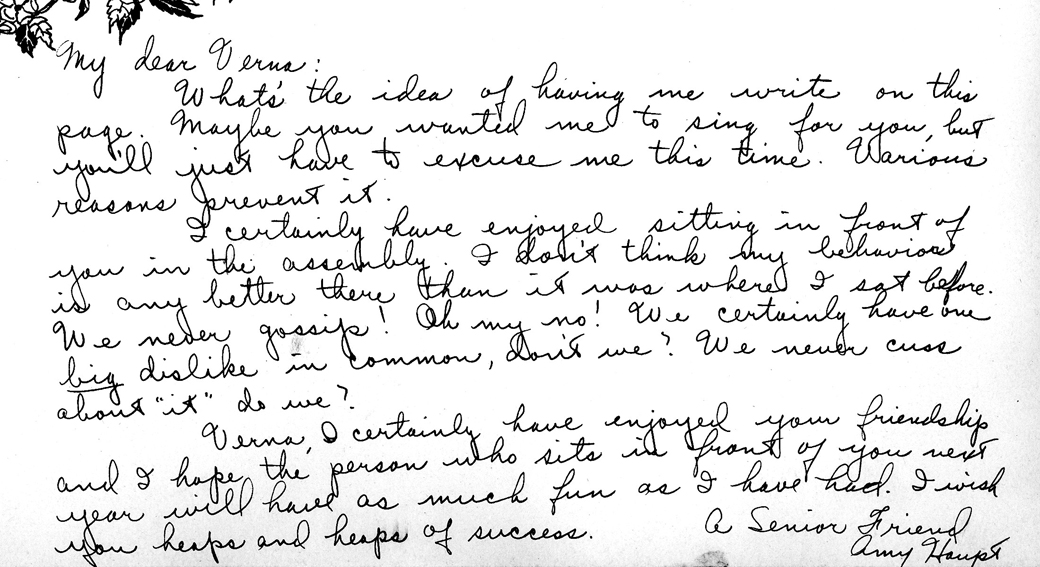 My dear Verna:
What's the idea of having me write on this
page. Maybe you wanted me to sing for you, but
you'll just have to excuse me this time. Various
reasons prevent it.
I certainly have enjoyed sitting in front of
you in the assembly. I don't think my behavior
is any better there than it was where I sat before.
We never gossip! Oh my no! We certainly have one
big dislike in common, don't we? We never cuss
about "it" do we?
Verna, I certainly have enjoyed your friendship
and I hope the person who sits in front of you next
year will have as much fun as I have had. I wish
you heaps and heaps of success. A Senior Friend
Amy Haupt